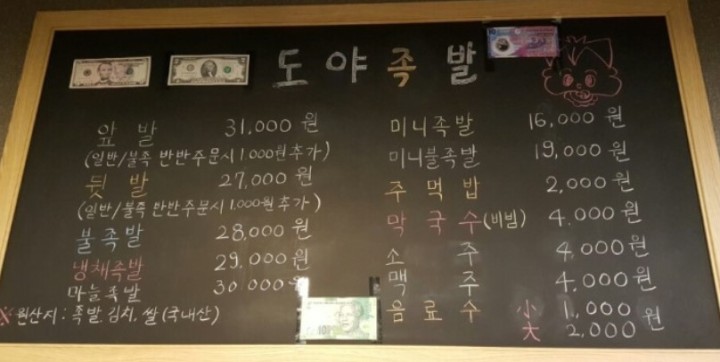 도야족발
앞발 31,000원
(일반/불족 반반주문시 1.000원추가)
뒷발 27,000원
(일반/불족 반반주문시 1.000원추가)
불족발 28,000원
냉채족발 29,000원
마늘족발 30,000원
※원산지: 족발, 김치, 쌀(국내산)
미니족발 16,000원
미니불족발 19,000원
주먹밥 2,000원
막국수(비빔) 4.000원
소주 4,000원
맥주 4,000원
음료수 小 1,000원
大 2,000